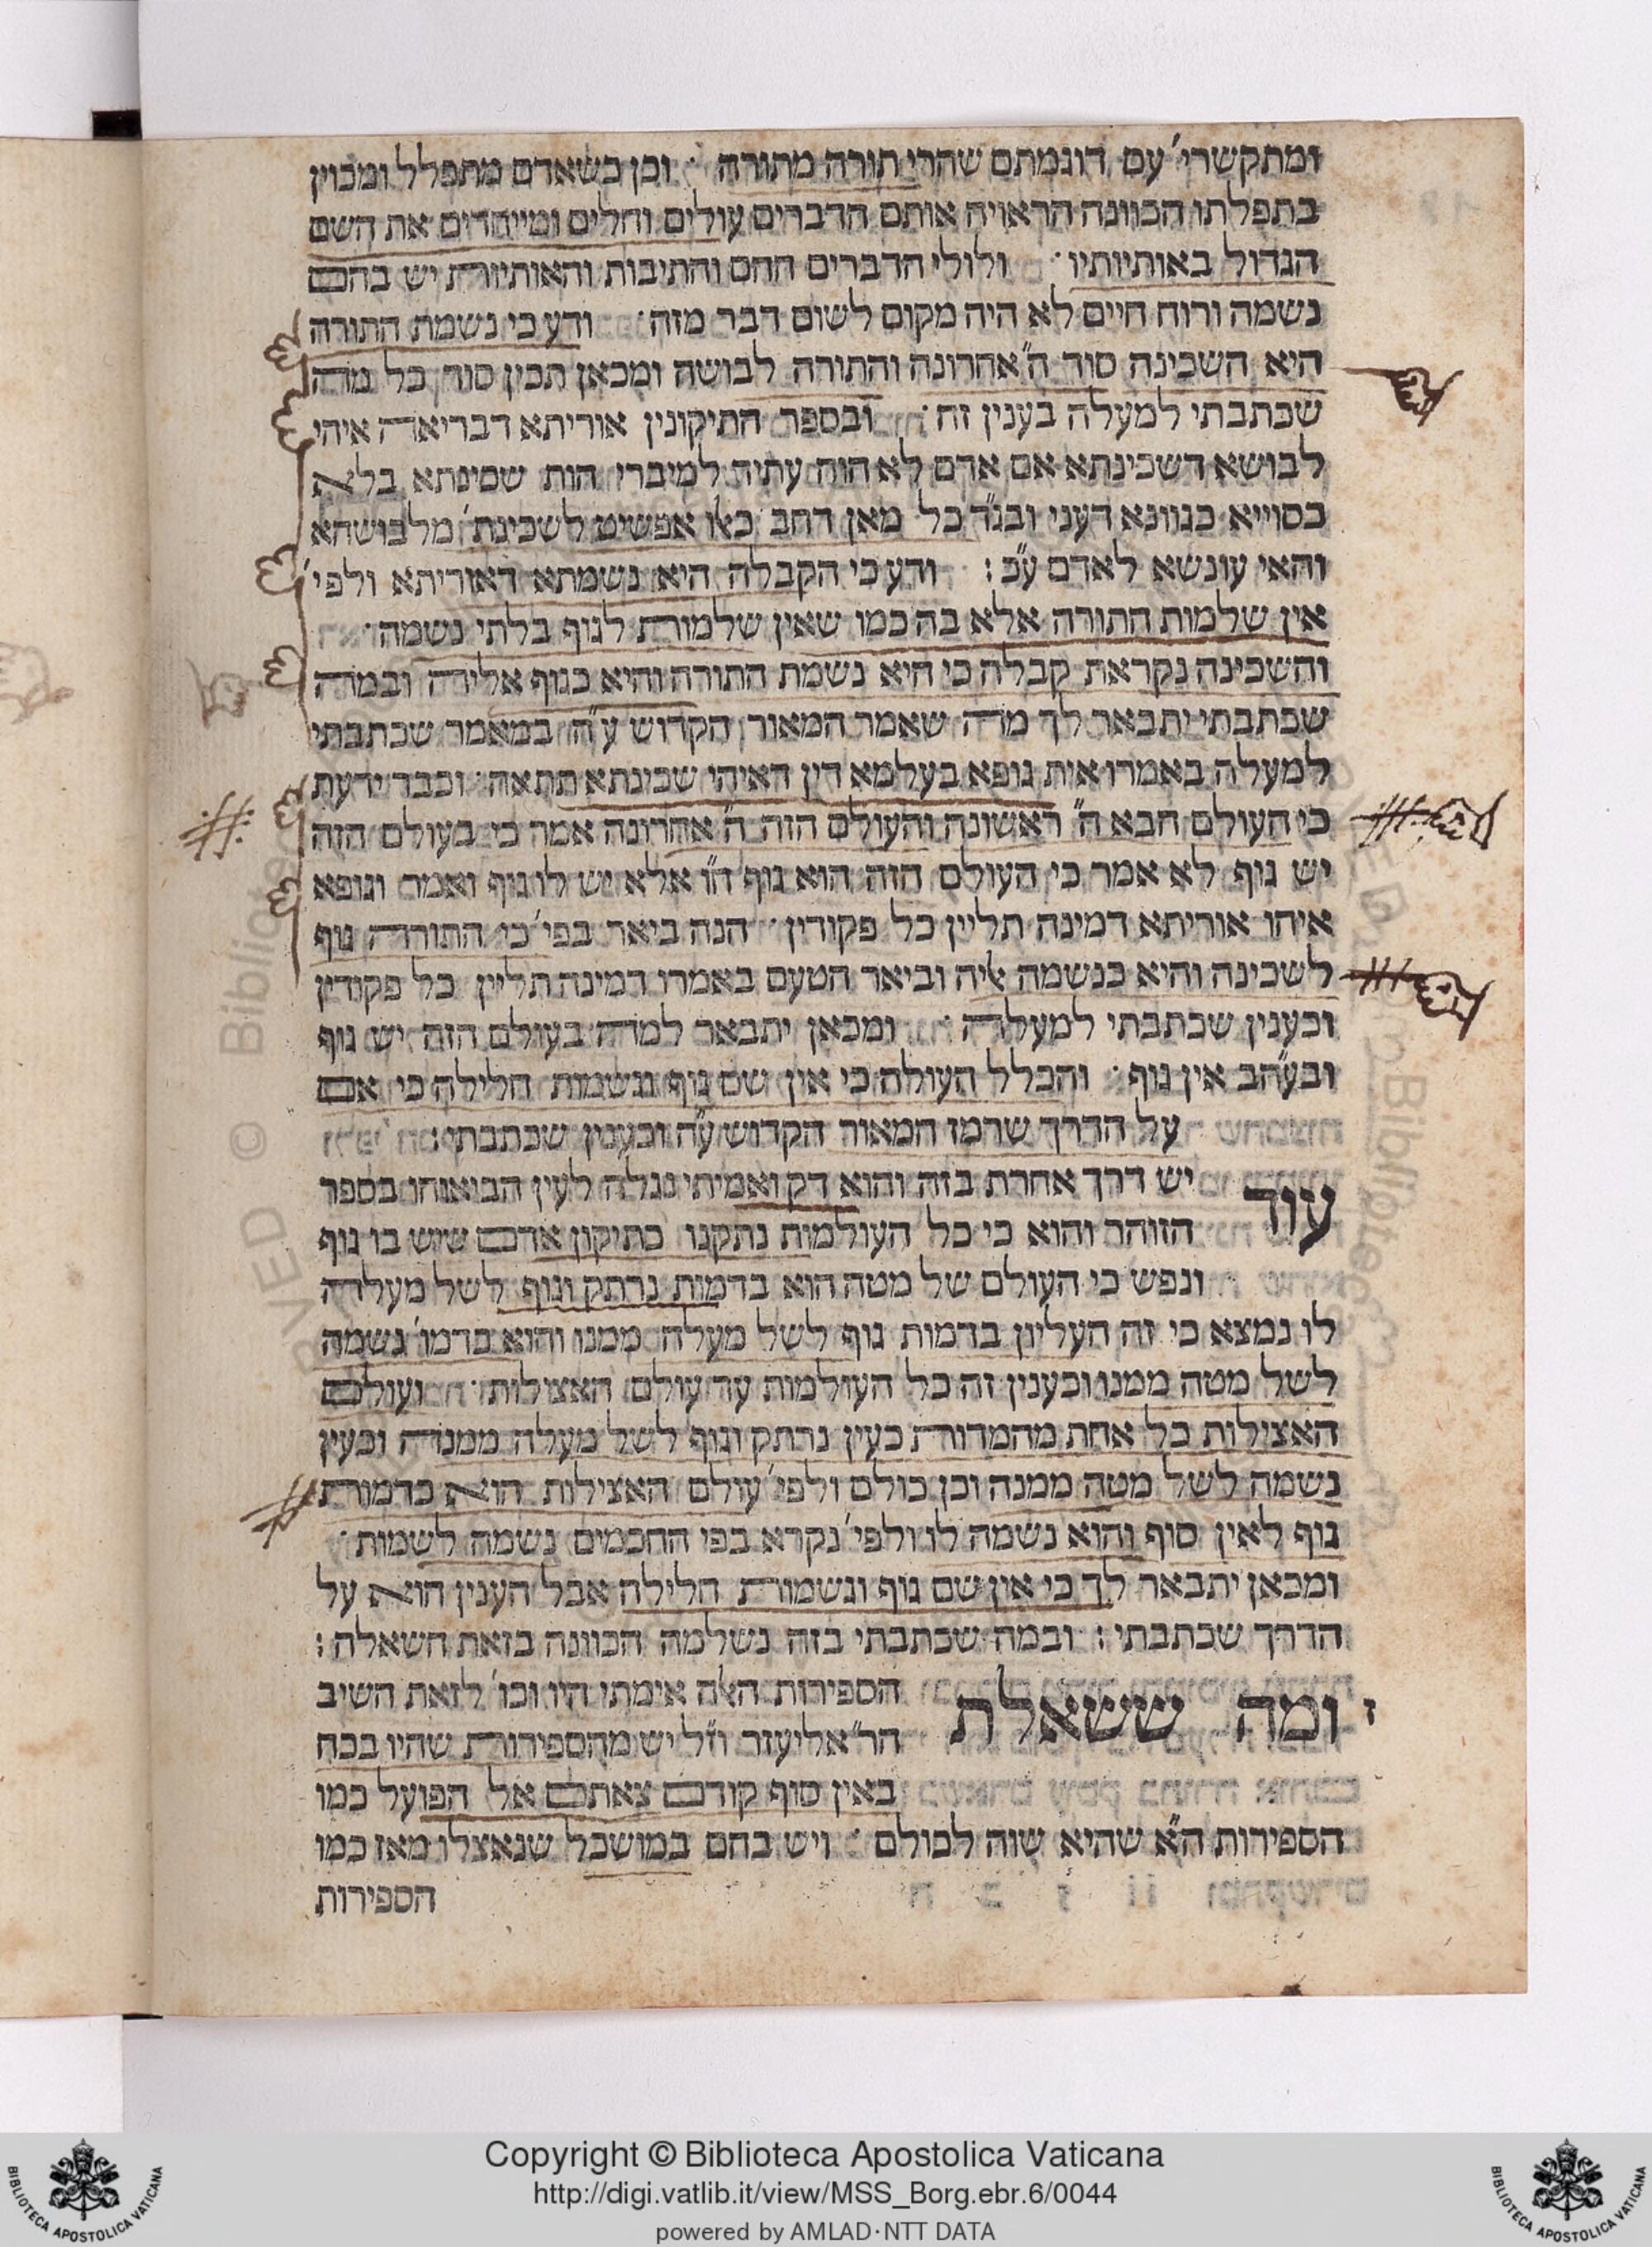 ומתקשרי׳ עם דוגמתם שהרי תורה מתורה · וכן כשאדם מתפלל ומכוין
בתפלתו הכוונה הראויה אותם הדברים עולים וחלים ומייחדים את השם
הגדול באותיותיו · ולולי הדברים ההם והתיבות והאותיות יש בהם
נשמה ורוח חיים לא היה מקום לשום דבר מזה · ודע כי נשמת התורה
היא השכינה סוד ה״אחרונה והתורה לבושה ומכאן תבין סוד כל מה
שכתבתי למעלה בענין זה · ובספר התיקונין אוריתא דבריאה איהי
לבושא דשכינתא אם אדם לא הוה עתיד למיברי הות שכינתא בלא
כסוייא כגוונא דעני ובג״ד כל מאן דחב כאו אפשיט לשכינת׳ מלבושהא
והאי עונשא לאדם ע״כ : ודע כי הקבלה היא נשמתא דאוריתא ולפי׳
אין שלמות התורה אלא בה כמו שאין שלמות לגוף בלתי נשמה ·
והשכינה נקראת קבלה כי היא נשמת התורה והיא כגוף אליה ובמה
שכתבתי יתבאר לך מה שאמר המאור הקדוש ע״ה במאמר שכתבתי
למעלה באמרו אית גופא בעלמא דין דאיהי שכינתא תתאה · וכבר ידעת
כי העולם הבא ה״ ראשונה והעולם הזה ה״ אחרונה אמר כי בעולם הזה
יש גוף לא אמר כי העולם הזה הוא גוף ח״ו אלא יש לו גוף ואמר וגופא
איהו אוריתא דמינה תליין כל פקודין · הנה ביאר בפי׳ כי התורה גוף
לשכינה והיא כנשמה אליה וביאר הטעם באמרו דמינה תליין כל פקודין
וכענין שכתבתי למעלה · ומכאן יתבאר למה בעולם הזה יש גוף
ובע״הב אין גוף · והכלל העולה כי אין שם גוף וגשמות חלילה כי אם
על הדרך שרמז המאור הקדוש ע״ה וכענין שכתבתי :
עוד יש דרך אחרת בזה והוא דק ואמיתי נגלה לעין הביאוהו בספר
הזוהר והוא כי כל העולמות נתקנו כתיקון אדם שיש בו גוף
ונפש כי העולם של מטה הוא בדמות נרתק וגוף לשל מעלה
לו נמצא כי זה העליון בדמות גוף לשל מעלה ממנו והוא בדמו׳ נשמה
לשל מטה ממנו וכענין זה כל העולמות עד עולם האצילות · ועולם
האצילות כל אחת מהמדות כעין נרתק וגוף לשל מעלה ממנה וכעין
נשמה לשל מטה ממנה וכן כולם ולפי׳ עולם האצילות הוא כדמות
גוף לאין סוף והוא נשמה לו ולפי׳ נקרא בפי החכמים נשמה לשמות ·
ומכאן יתבאר לך כי אין שם גוף וגשמות חלילה אבל הענין הוא על
הדרך שכתבתי : ובמה שכתבתי בזה נשלמה הכוונה בזאת השאלה :
ז ומה ששאלת הספירות האלה אימתי היו וכו׳ לזאת השיב
הר״ אליעזר וז״ל יש מהספירות שהיו בכח
באין סוף קודם צאתם אל הפועל כמו
הספירות הא״ שהיא שוה לכולם · ויש בהם במושכל שנאצלו מאז כמו
הספירות
Copyright © Biblioteca Apostolica Vaticana
http://digi.vatlib.it/view/MSS_Borg.ebr.6/0044
powered by AMLAD·NTT DATA
BIBLIOTECA APOSTOLICA VATICANA
BIBLIOTECA APOSTOLICA VATICANA